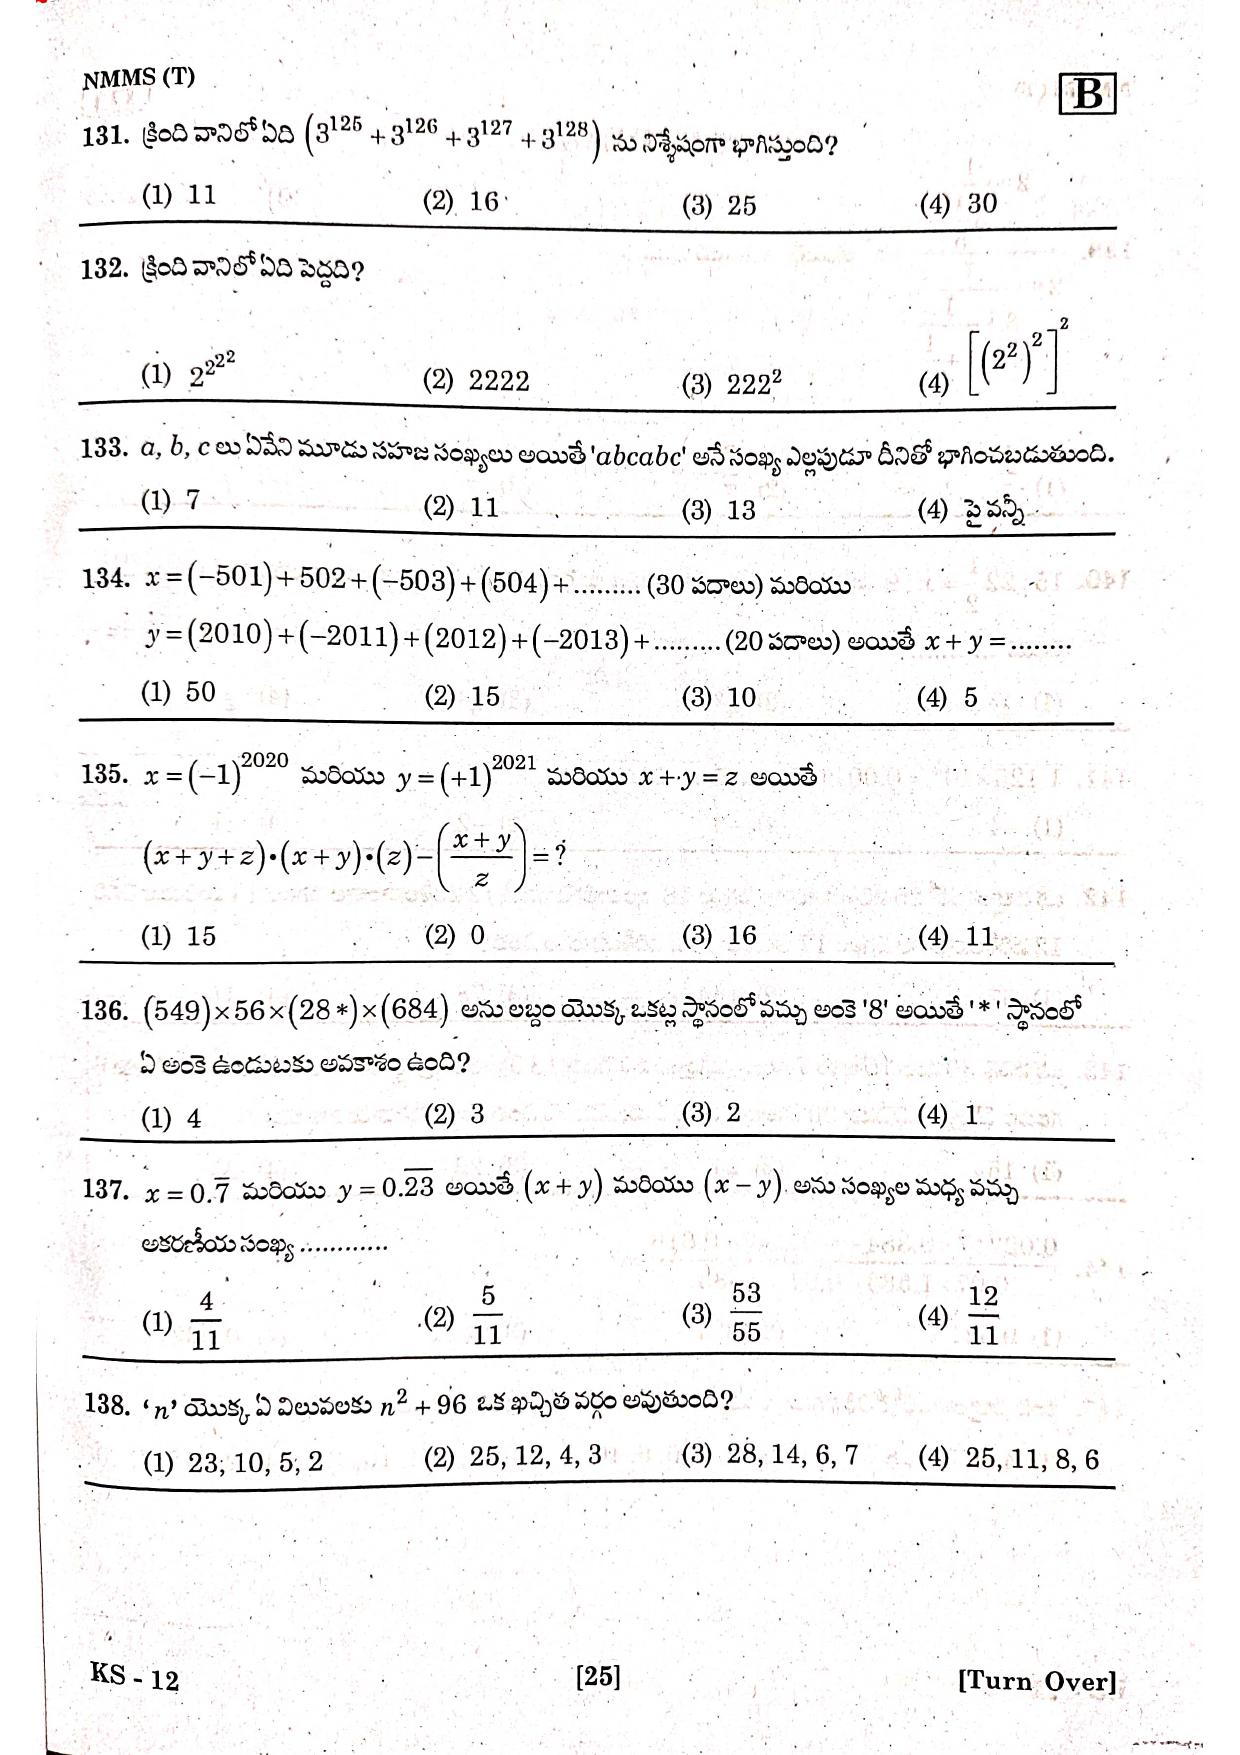 NMMS (T)
B
131. క్రింది వానిలో ఏది (3¹²⁵ + 3¹²⁶ + 3¹²⁷ + 3¹²⁸) ను నిశ్శేషంగా భాగిస్తుంది?
(1) 11 (2) 16 (3) 25 (4) 30
132. క్రింది వానిలో ఏది పెద్దది?
(1) 2^2^2^2^2 (2) 2222 (3) 222² (4) [(2²)²]²
133. a, b, c లు ఏవేని మూడు సహజ సంఖ్యలు అయితే 'abcabc' అనే సంఖ్య ఎల్లపుడూ దీనితో భాగించబడుతుంది.
(1) 7 (2) 11 (3) 13 (4) పై వన్నీ
134. x = (−501) + 502 + (−503) + (504) + ......... (30 పదాలు) మరియు
y = (2010) + (−2011) + (2012) + (−2013) + ......... (20 పదాలు) అయితే x + y = ........
(1) 50 (2) 15 (3) 10 (4) 5
135. x = (−1)²⁰²⁰ మరియు y = (+1)²⁰²¹ మరియు x + y = z అయితే
(x + y + z)•(x + y)•(z) − ((x + y)/z) = ?
(1) 15 (2) 0 (3) 16 (4) 11
136. (549)×56×(28*)×(684) అను లబ్దం యొక్క ఒకట్ల స్థానంలో వచ్చు అంకె '8' అయితే '*' స్థానంలో
ఏ అంకె ఉండుటకు అవకాశం ఉంది?
(1) 4 (2) 3 (3) 2 (4) 1
137. x = 0.7̅ మరియు y = 0.2̅3̅ అయితే (x + y) మరియు (x − y) అను సంఖ్యల మధ్య వచ్చు
అకరణీయ సంఖ్య ............
(1) 4/11 (2) 5/11 (3) 53/55 (4) 12/11
138. 'n' యొక్క ఏ విలువలకు n² + 96 ఒక ఖచ్చిత వర్గం అవుతుంది?
(1) 23, 10, 5, 2 (2) 25, 12, 4, 3 (3) 28, 14, 6, 7 (4) 25, 11, 8, 6
KS - 12 [25] [Turn Over]